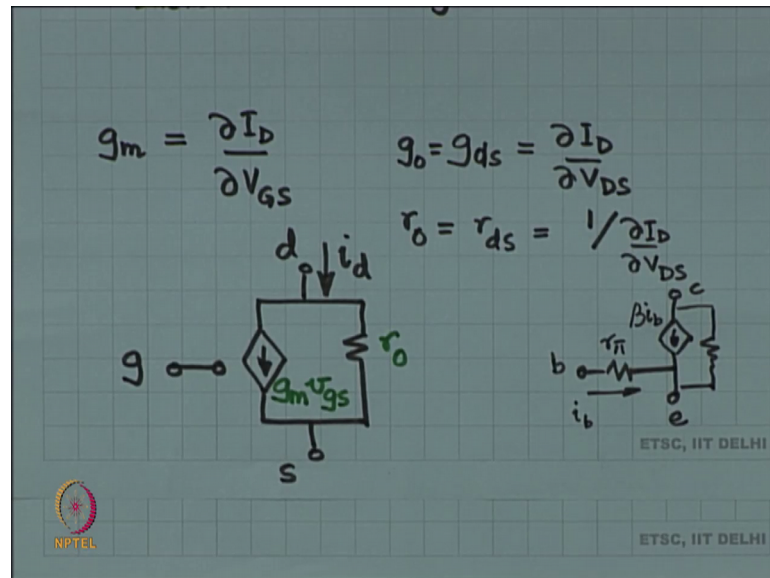 gm = ∂I_D / ∂V_GS
g_o = g_ds = ∂I_D / ∂V_DS
r_o = r_ds = 1 / ∂I_D / ∂V_DS
d
i_d
g
g_m v_gs
r_o
s
c
βi_b
b
r_π
i_b
e
ETSC, IIT DELHI
NPTEL
ETSC, IIT DELHI